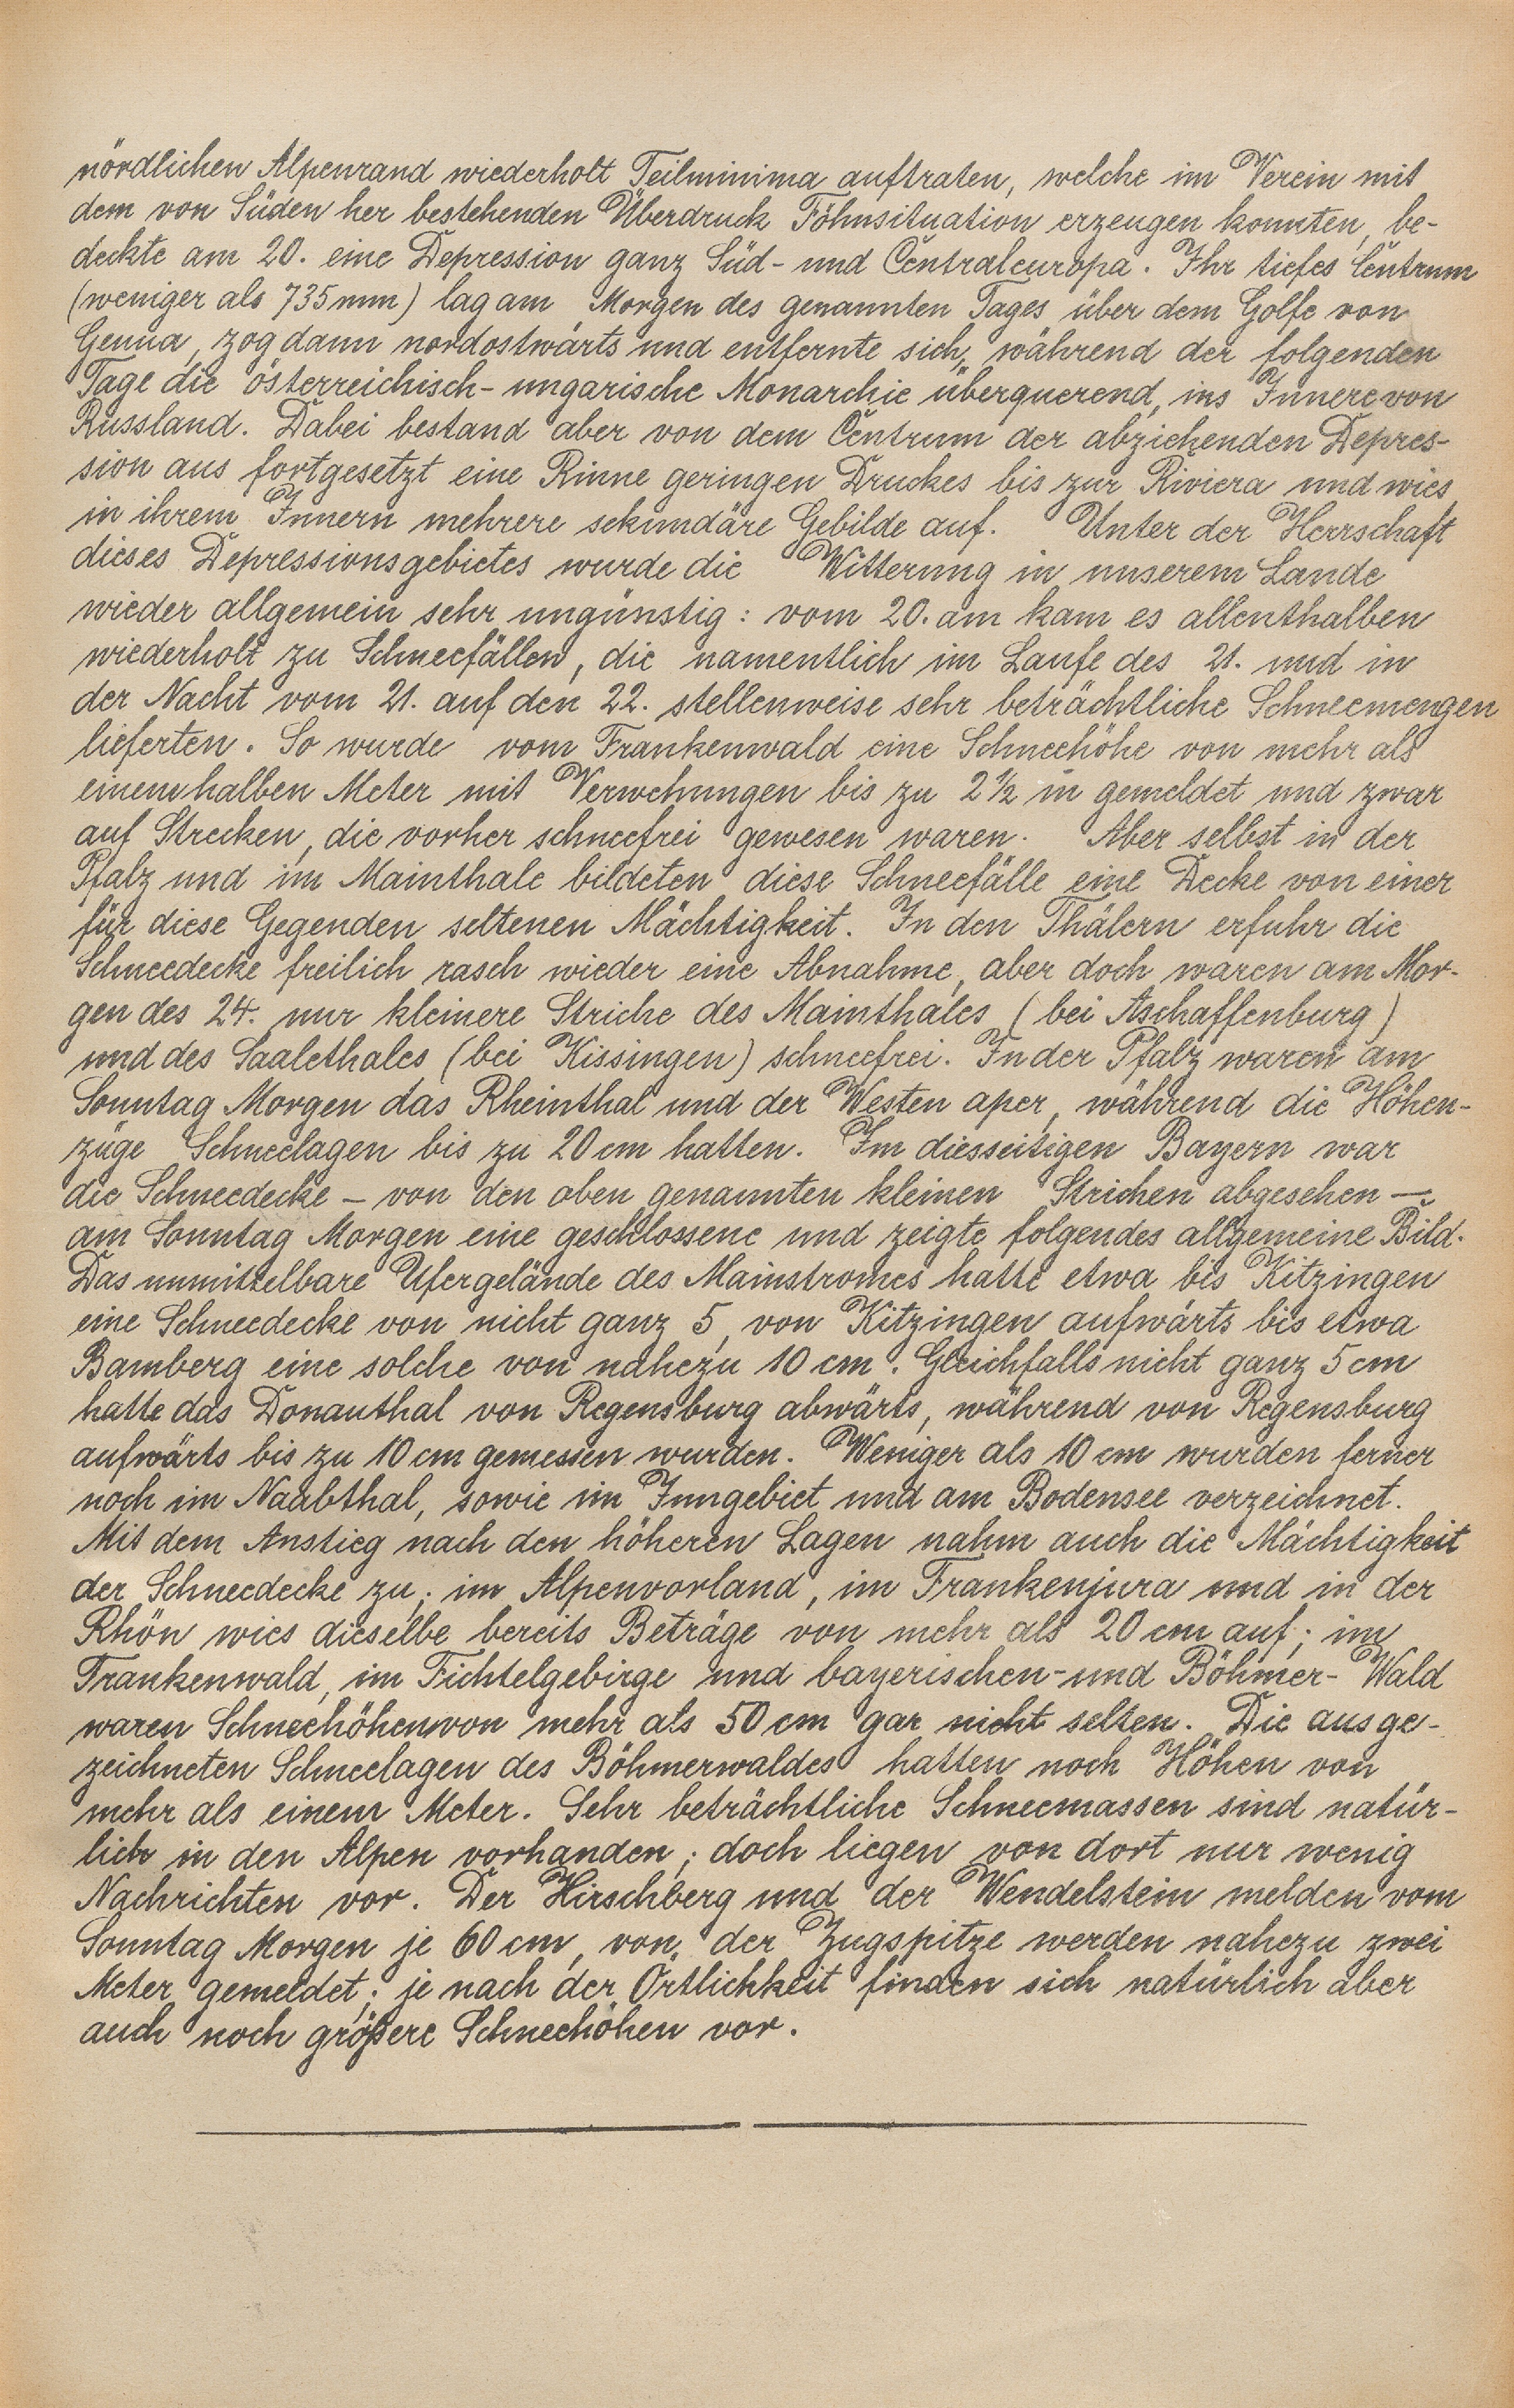 nördlichen Alpenrand wiederholt Teilminima auftraten, welche im Verein mit
dem von Süden her bestehenden Überdruck Föhnsituation erzeugen konnten, be-
deckte am 20. eine Depression ganz Süd- und Centraleuropa. Ihr tiefes Centrum
(weniger als 735 mm) lag am Morgen des genannten Tages über dem Golfe von
Genua, zog dann nordostwärts und entfernte sich, während der folgenden
Tage die österreichisch-ungarische Monarchie überquerend, ins Innere von
Russland. Dabei bestand aber von dem Centrum der abziehenden Depres-
sion aus fortgesetzt eine Rinne geringen Druckes bis zur Riviera und wies
in ihrem Innern mehrere sekundäre Gebilde auf. Unter der Herrschaft
dieses Depressionsgebietes wurde die Witterung in unserem Lande
wieder allgemein sehr ungünstig: vom 20. am kam es allenthalben
wiederholt zu Schneefällen, die namentlich im Laufe des 21. und in
der Nacht vom 21. auf den 22. stellenweise sehr beträchtliche Schneemengen
lieferten. So wurde vom Frankenwald eine Schneehöhe von mehr als
einem halben Meter mit Verwehungen bis zu 2½ m gemeldet und zwar
auf Strecken, die vorher schneefrei gewesen waren. Aber selbst in der
Pfalz und im Mainthale bildeten diese Schneefälle eine Decke von einer
für diese Gegenden seltenen Mächtigkeit. In den Thälern erfuhr die
Schneedecke freilich rasch wieder eine Abnahme, aber doch waren am Mor-
gen des 24. nur kleinere Striche des Mainthales (bei Aschaffenburg)
und des Saalethales (bei Kissingen) schneefrei. In der Pfalz waren am
Sonntag Morgen das Rheinthal und der Westen aper, während die Höhen-
züge Schneelagen bis zu 20 cm hatten. Im diesseitigen Bayern war
die Schneedecke – von den oben genannten kleinen Strichen abgesehen –
am Sonntag Morgen eine geschlossene und zeigte folgendes allgemeine Bild.
Das unmittelbare Ufergelände des Mainstromes hatte etwa bis Kitzingen
eine Schneedecke von nicht ganz 5, von Kitzingen aufwärts bis etwa
Bamberg eine solche von nahezu 10 cm. Gleichfalls nicht ganz 5 cm
hatte das Donauthal von Regensburg abwärts, während von Regensburg
aufwärts bis zu 10 cm gemessen wurden. Weniger als 10 cm wurden ferner
noch im Naabthal, sowie im Inngebiet und am Bodensee verzeichnet.
Mit dem Anstieg nach den höheren Lagen nahm auch die Mächtigkeit
der Schneedecke zu; im Alpenvorland, im Frankenjura und in der
Rhön wies dieselbe bereits Beträge von mehr als 20 cm auf; im
Frankenwald, im Fichtelgebirge und bayerischen- und Böhmer-Wald
waren Schneehöhen von mehr als 50 cm gar nicht selten. Die ausge-
zeichneten Schneelagen des Böhmerwaldes hatten noch Höhen von
mehr als einem Meter. Sehr beträchtliche Schneemassen sind natür-
lich in den Alpen vorhanden; doch liegen von dort nur wenig
Nachrichten vor. Der Hirschberg und der Wendelstein melden vom
Sonntag Morgen je 60 cm, von der Zugspitze werden nahezu zwei
Meter gemeldet; je nach der Örtlichkeit finden sich natürlich aber
auch noch größere Schneehöhen vor.